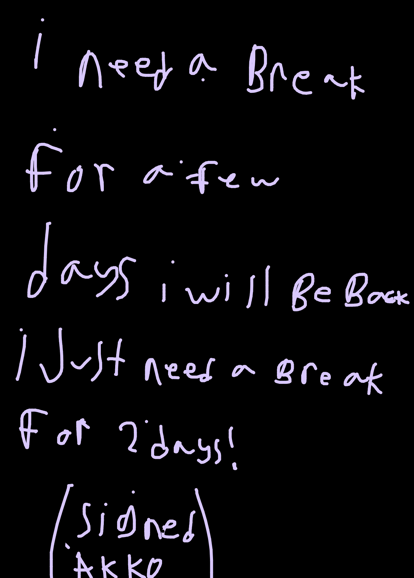 i need a Break
For a few
days i will Be Back
i Just need a Break
For 2 days!
(signed
AKKO)